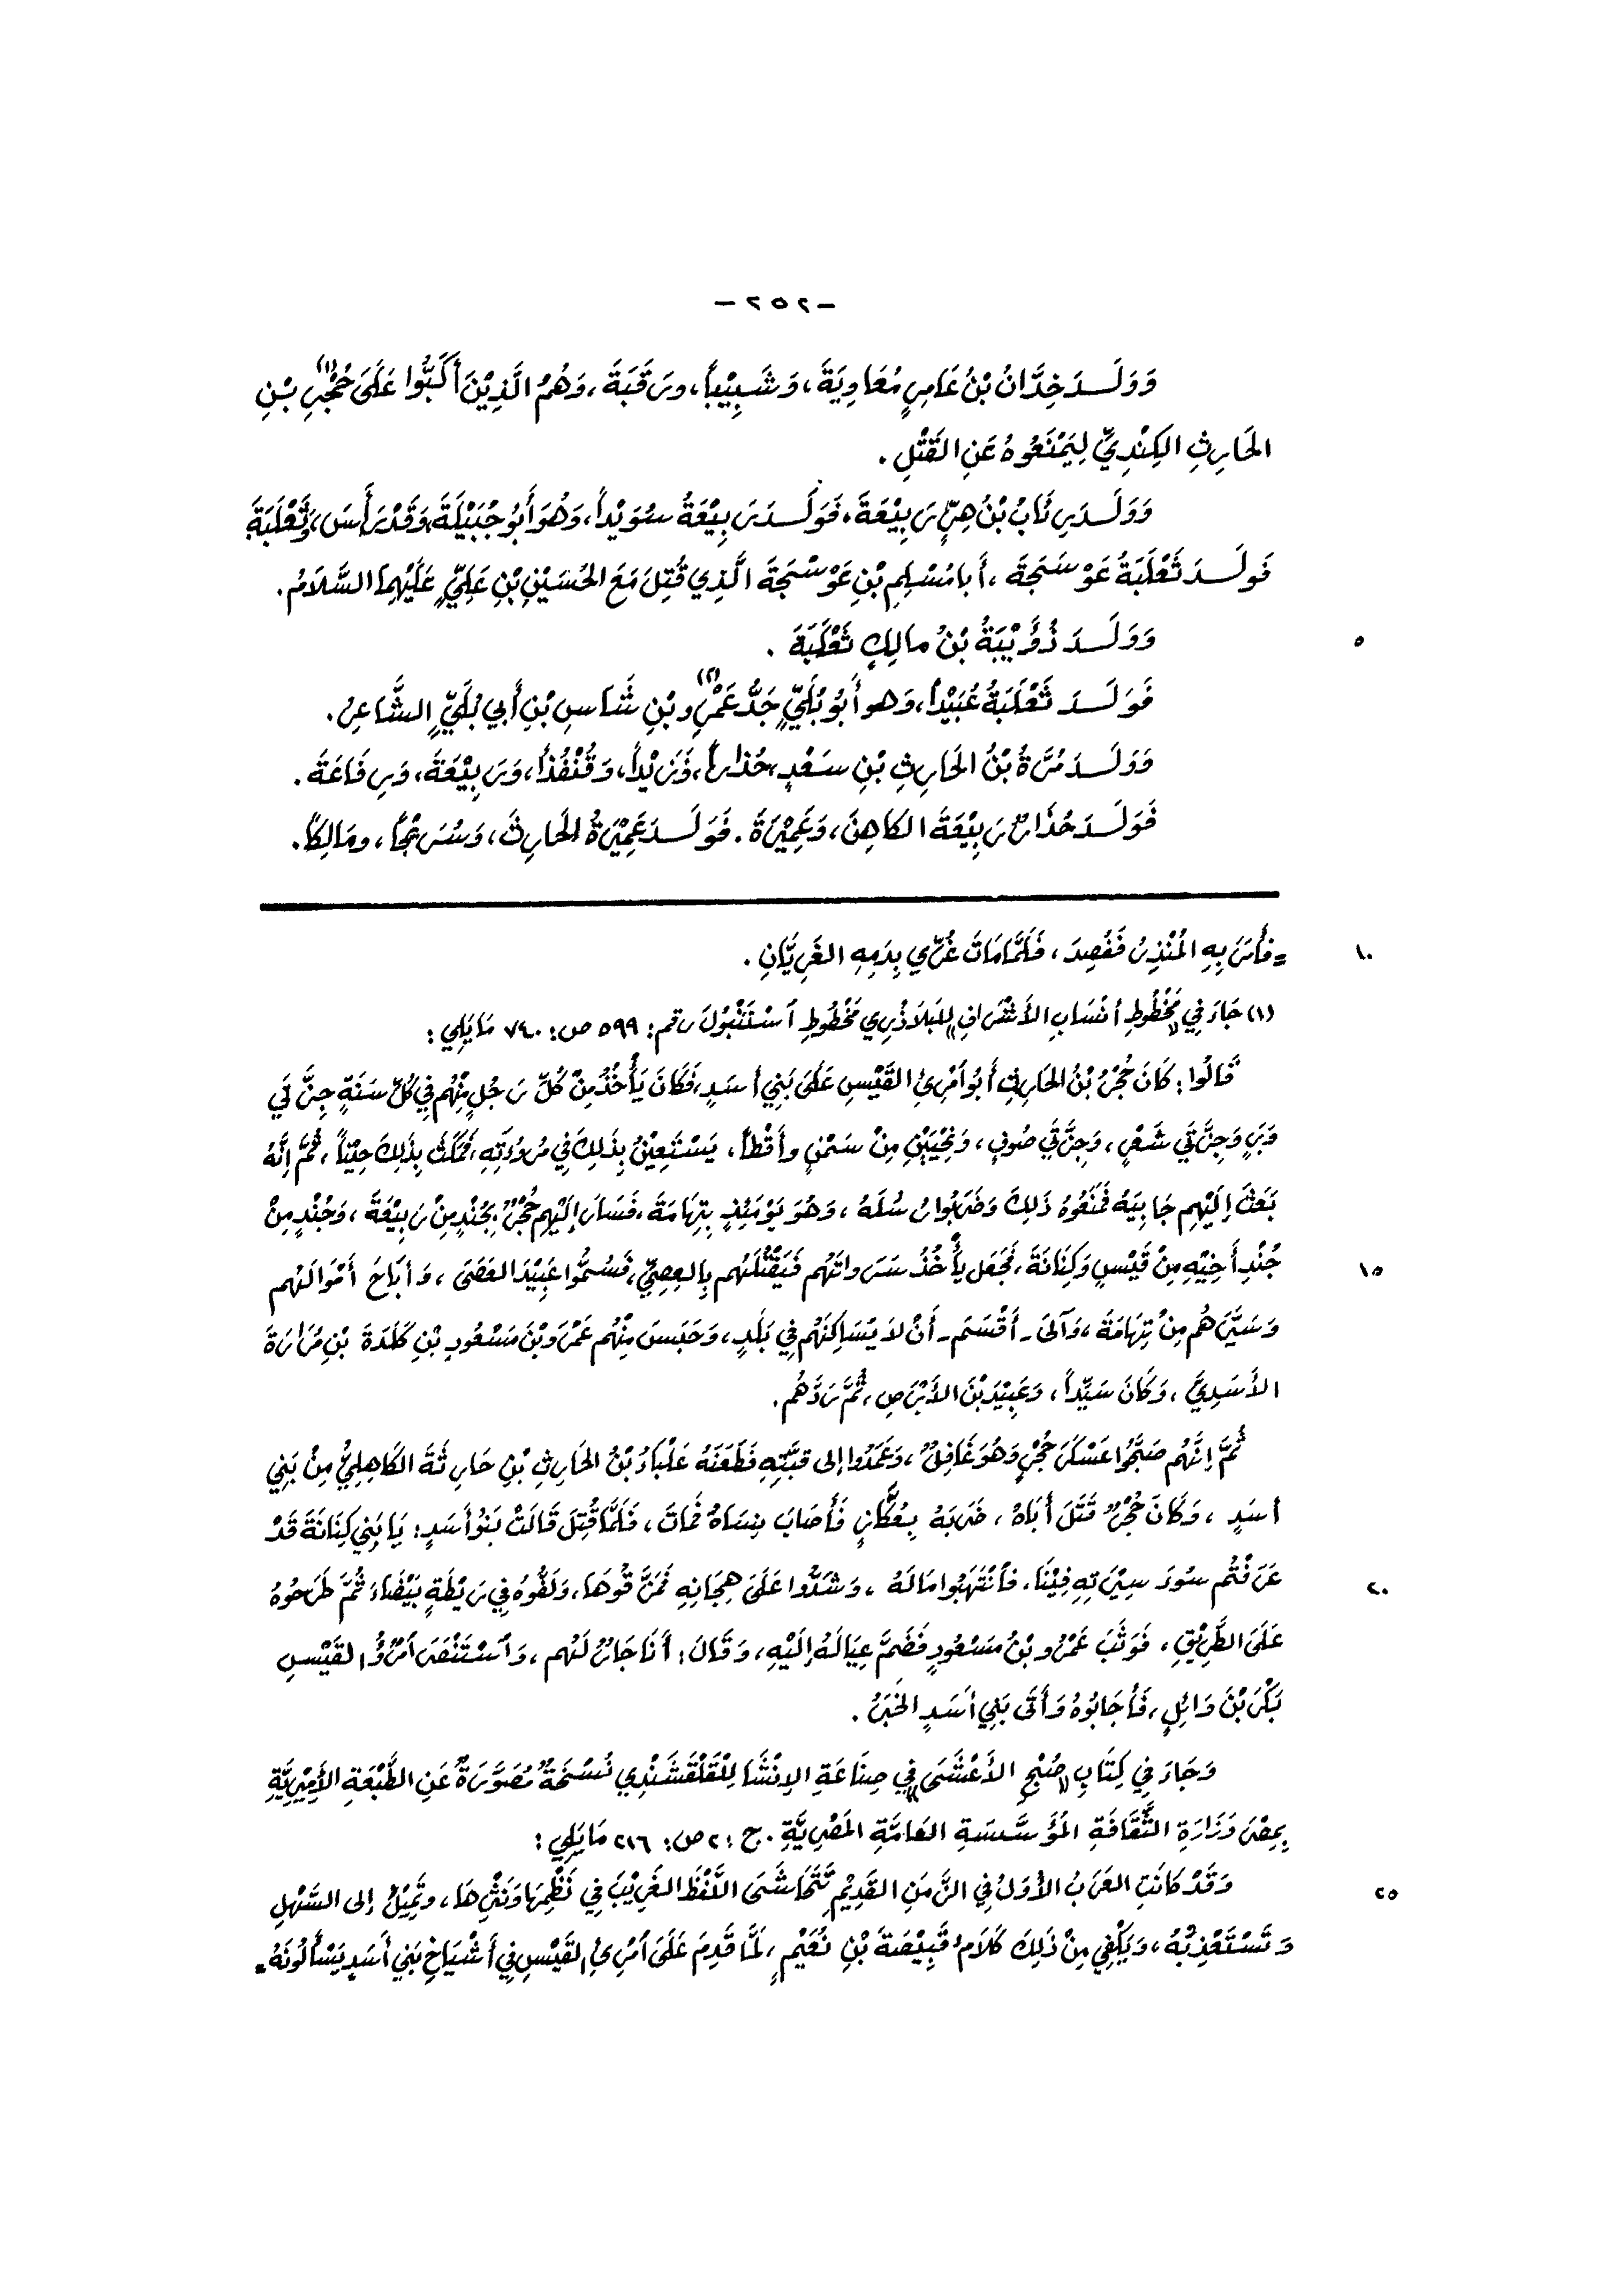 - ٢٥٢ -
وَوَلَـدَ خِدَّانُ بْنُ عَامِرٍ مُعَاوِيَةَ، وَشَبِيْباً، ورَقَبَةَ، وَهُمُ الَّذِيْنَ أَكَبُّوا عَلَى حُجْرِ(١) بْنِ
الحَارِثِ الكِنْدِيِّ لِيَمْنَعُوهُ عَنِ القَتْلِ .
وَوَلَـدَ رِئَابُ بْنُ هِرٍّ رَبِيْعَةَ. فَوَلَـدَ رَبِيْعَةُ سُوَيْداً، وَهُوَ أَبُو جُبَيْلَةَ، وَقَدْ رَأَسَ، وَثَعْلَبَةَ
فَوَلَـدَ ثَعْلَبَةُ عَوْسَجَةَ ، أَبا مُسْلِمِ بْنِ عَوْسَجَةَ الَّذِي قُتِلَ مَعَ الحُسَيْنِ بْنِ عَلِيٍّ عَلَيْهِمَا السَّلَامُ.
٥ وَوَلَـدَ ذُؤَيْبَةُ بْنُ مالِكٍ ثَعْلَبَةَ .
فَوَلَـدَ ثَعْلَبَةُ عُبَيْداً، وَهو أَبُو بُلَيٍّ جَدُّ عَمْرِو(٢) بْنِ شَاسِ بْنِ أَبي بُلَيٍّ الشَّاعِرُ.
وَوَلَـدَ مُرَّةُ بْنُ الحَارِثِ بْنِ سَعْدٍ، حُذَاراً، وَزَيْداً، وَقُنْفُذاً، وَرَبِيْعَةَ، وَرِفَاعَةَ.
فَوَلَـدَ حُذَارٌ رَبِيْعَةَ الكَاهِنَ، وَعَمِيْرَةَ. فَوَلَـدَ عَمِيْرَةُ الحَارِثَ، وَسُرَيْجاً، ومَالِكاً.
١٠ = فأَمَرَ بِهِ المُنْذِرُ فَفُصِدَ، فَلَمَّا مَاتَ غُرِّي بِدَمِهِ الغَرِيَّانِ .
(١) جَاءَ فِي مَخْطُوطِ «أنْسَابِ الأَشْرَافِ» لِلبَلاَذُرِي مَخْطُوطِ اَسْتَنْبُولَ رقم: ٥٩٩ ص: ٧٤٠ مَايَلِي:
قَالُوا: كَانَ حُجْرُ بْنُ الحَارِثِ أَبُو اَمْرِئِ القَيْسِ عَلَى بَنِي أسَدٍ، فَكَانَ يَأْخُذُ مِنْ كُلِّ رَجُلٍ مِنْهُم فِي كُلِّ سَنَةٍ جِزَّتَي
وَبَرٍ وَجِزَّتَي شَعْرٍ، وَجِزَّتَي صُوفٍ، وَنِحْيَيْنِ مِنْ سَمْنٍ وأَقْطاً، يَسْتَعِيْنُ بِذَلِكَ فِي مُرُوءَتِهِ، فَمَكَثَ بِذَلِكَ حِيْناً، ثُمَّ إِنَّهُ
بَعَثَ إِلَيْهِم جَابِيَهُ فَمَنَعُوهُ ذَلِكَ وَضَرَبُوا رُسُلَهُ، وَهُوَ يَوْمَئِذٍ بِتِهَامَةَ، فَسَارَ إِلَيْهِم حُجْرٌ بِجُنْدٍ مِنْ رَبِيْعَةَ، وَجُنْدٍ مِنْ
١٥ جُنْدِ أَخِيْهِ مِنْ قَيْسٍ وَكِنَانَةَ، فَجَعَل يَأْخُذُ سَرَواتَهُم فَيَقْتُلَهُم بِالعِصِيِّ، فَسُمُّوا عَبِيْدَ العَصَى، وَأَبَاحَ أَمْوَالَهُم
وَسَيَّرَهُم مِنْ تِهَامَةَ، وَآلَى - أَقْسَمَ - أَنْ لاَ يُسَاكِنَهُم فِي بَلَدٍ، وَحَبَسَ مِنْهُم عَمْرَو بْنَ مَسْعُودِ بْنِ كَلَدَةَ بْنِ مُرَارَةَ
الأَسَدِيَّ، وَكَانَ سَيِّداً، وَعَبِيْدَ بْنَ الأَبْرَصِ، ثُمَّ رَدَّهُم.
ثُمَّ إِنَّهُم صَبَّحُوا عَسْكَرَ حُجْرٍ وَهُوَ غَافِلٌ، وَعَمَدُوا إلى قبَّتِهِ فَطَعَنَهُ عَلْبَاءُ بْنُ الحَارِثِ بْنِ حَارِثَةَ الكَاهِلِيُّ مِنْ بَنِي
أسَدٍ، وَكَانَ حُجْرٌ قَتَلَ أَبَاهُ، ضَرَبَهُ بِعُكَّازٍ فَأَصَابَ نِسَاهُ فَمَاتَ، فَلَمَّا قُتِلَ قَالَتْ بَنُو أَسَدٍ: يَا بَنِي كِنَانَةَ قَدْ
٢٠ عَرَفْتُم سُوءَ سِيْرَتِهِ فِيْنَا، فاَنْتَهَبُوا مَالَهُ، وَشَدُّوا عَلَى هِجَانِهِ فَمَزَّقُوهَا، وَلَفُّوهُ فِي رَيْطَةٍ بَيْضَاءَ ثُمَّ طَرَحُوهُ
عَلَى الطَّرِيْقِ، فَوَثَبَ عَمْرُو بْنُ مَسْعُودٍ فَضَمَّ عِيَالَهُ إِلَيْهِ، وَقَالَ: أَنَا جَارٌ لَهُم، وَاَسْتَنْفَرَ اَمْرُؤُ القَيْسِ
بَكْرَ بْنَ وَائِلٍ، فَأَجَابُوهُ وَأَتَى بَنِي أَسَدٍ الخَبَرُ.
وَجَاءَ فِي كِتَابِ «صُبْحِ الأَعْشَى فِي صِنَاعَةِ الإِنْشَا» لِلْقَلْقَشَنْدِي نُسْخَةٌ مُصَوَّرَةٌ عَنِ الطَّبْعَةِ الأَمِيْرِيَّةِ
بِمِصْرَ وَزَارَةِ الثَّقَافَةِ المُؤَسَّسَةِ العَامَّةِ المَصْرِيَّةِ. ج: ٢ ص: ٢١٦ مَايَلِي:
٢٥ وَقَدْ كَانَتِ العَرَبُ الأُوَلُ فِي الزَّمَنِ القَدِيْمِ تَتَحَاشَى اللَّفْظَ الغَرِيْبَ فِي نَظْمِهَا وَنَثْرِهَا، وَتَمِيْلُ إلى السَّهْلِ
وَتَسْتَعْذِبُهُ، وَيَكْفِي مِنْ ذَلِكَ كَلَامُ قَبِيْصَةَ بْنِ نُعَيْمٍ، لَمَّا قَدِمَ عَلَى اَمْرِئِ القَيْسِ فِي أَشْيَاخِ بَنِي أَسَدٍ يَسْأَلُونَهُ =